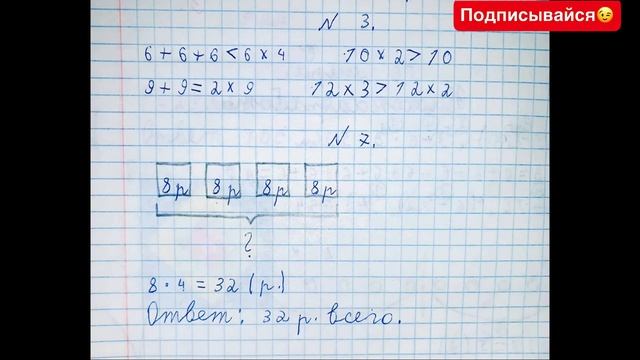 Подписывайся😉
N 3.
6 + 6 + 6 < 6 × 4 10 × 2 > 10
9 + 9 = 2 × 9 12 × 3 > 12 × 2
N 7.
8 р 8 р 8 р 8 р
?
8 · 4 = 32 (р.)
Ответ: 32 р. всего.